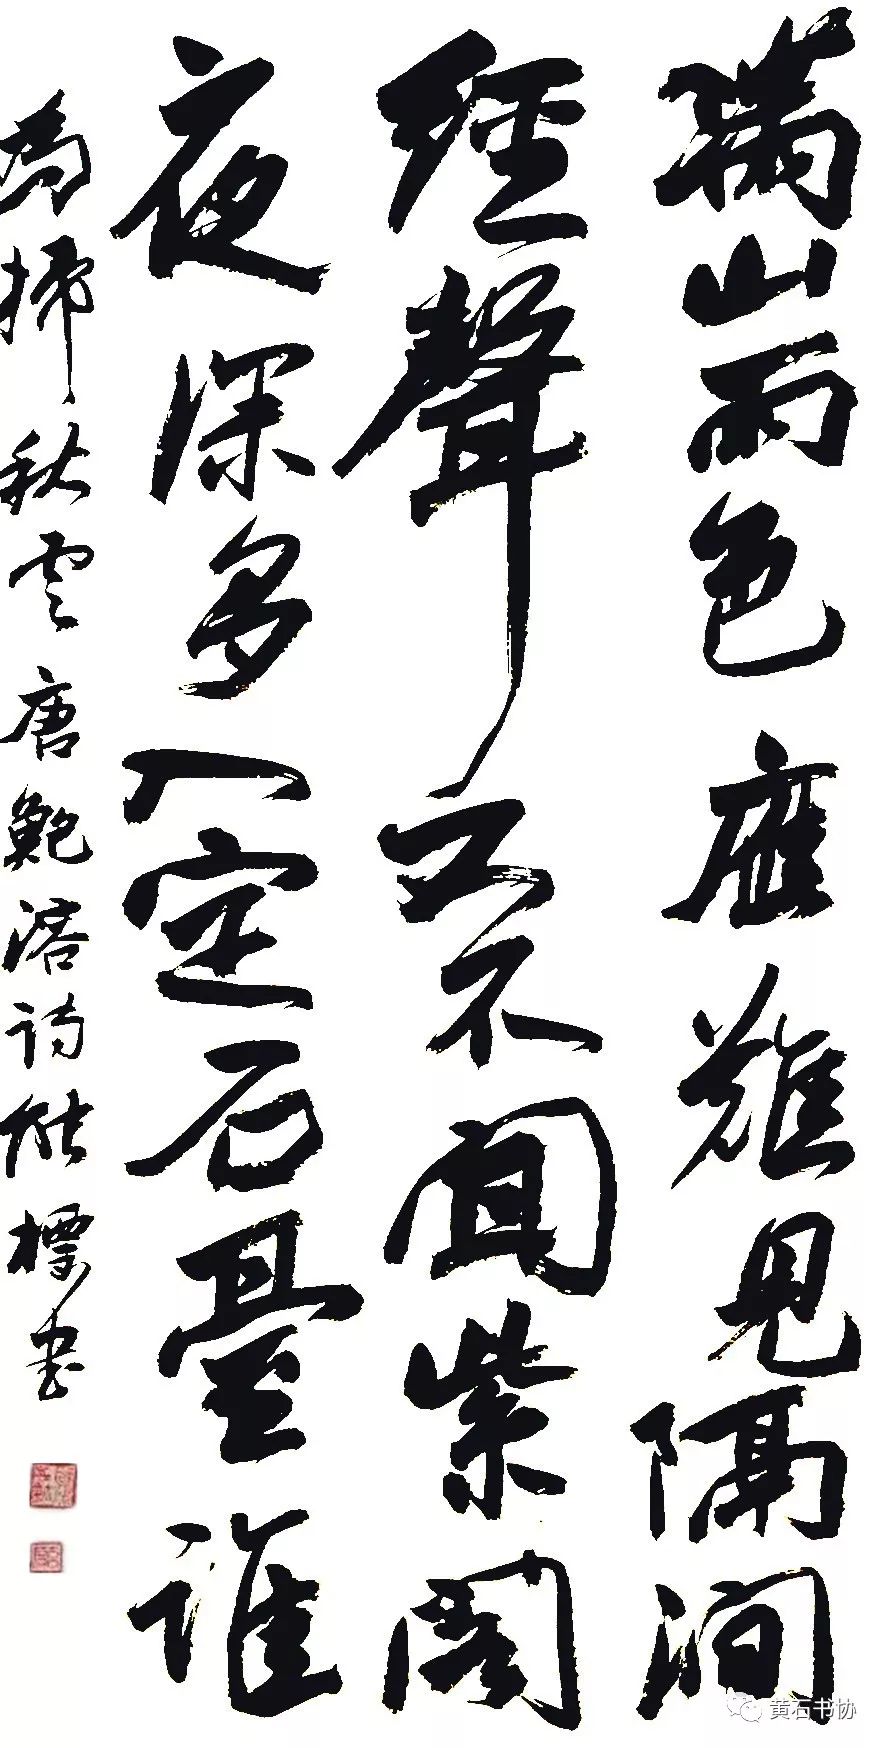 滿山雨色應難見隔澗
經聲又不聞紫閣
夜深多入定石臺誰
為掃秋雲唐鮑溶詩能標書
黄石书协